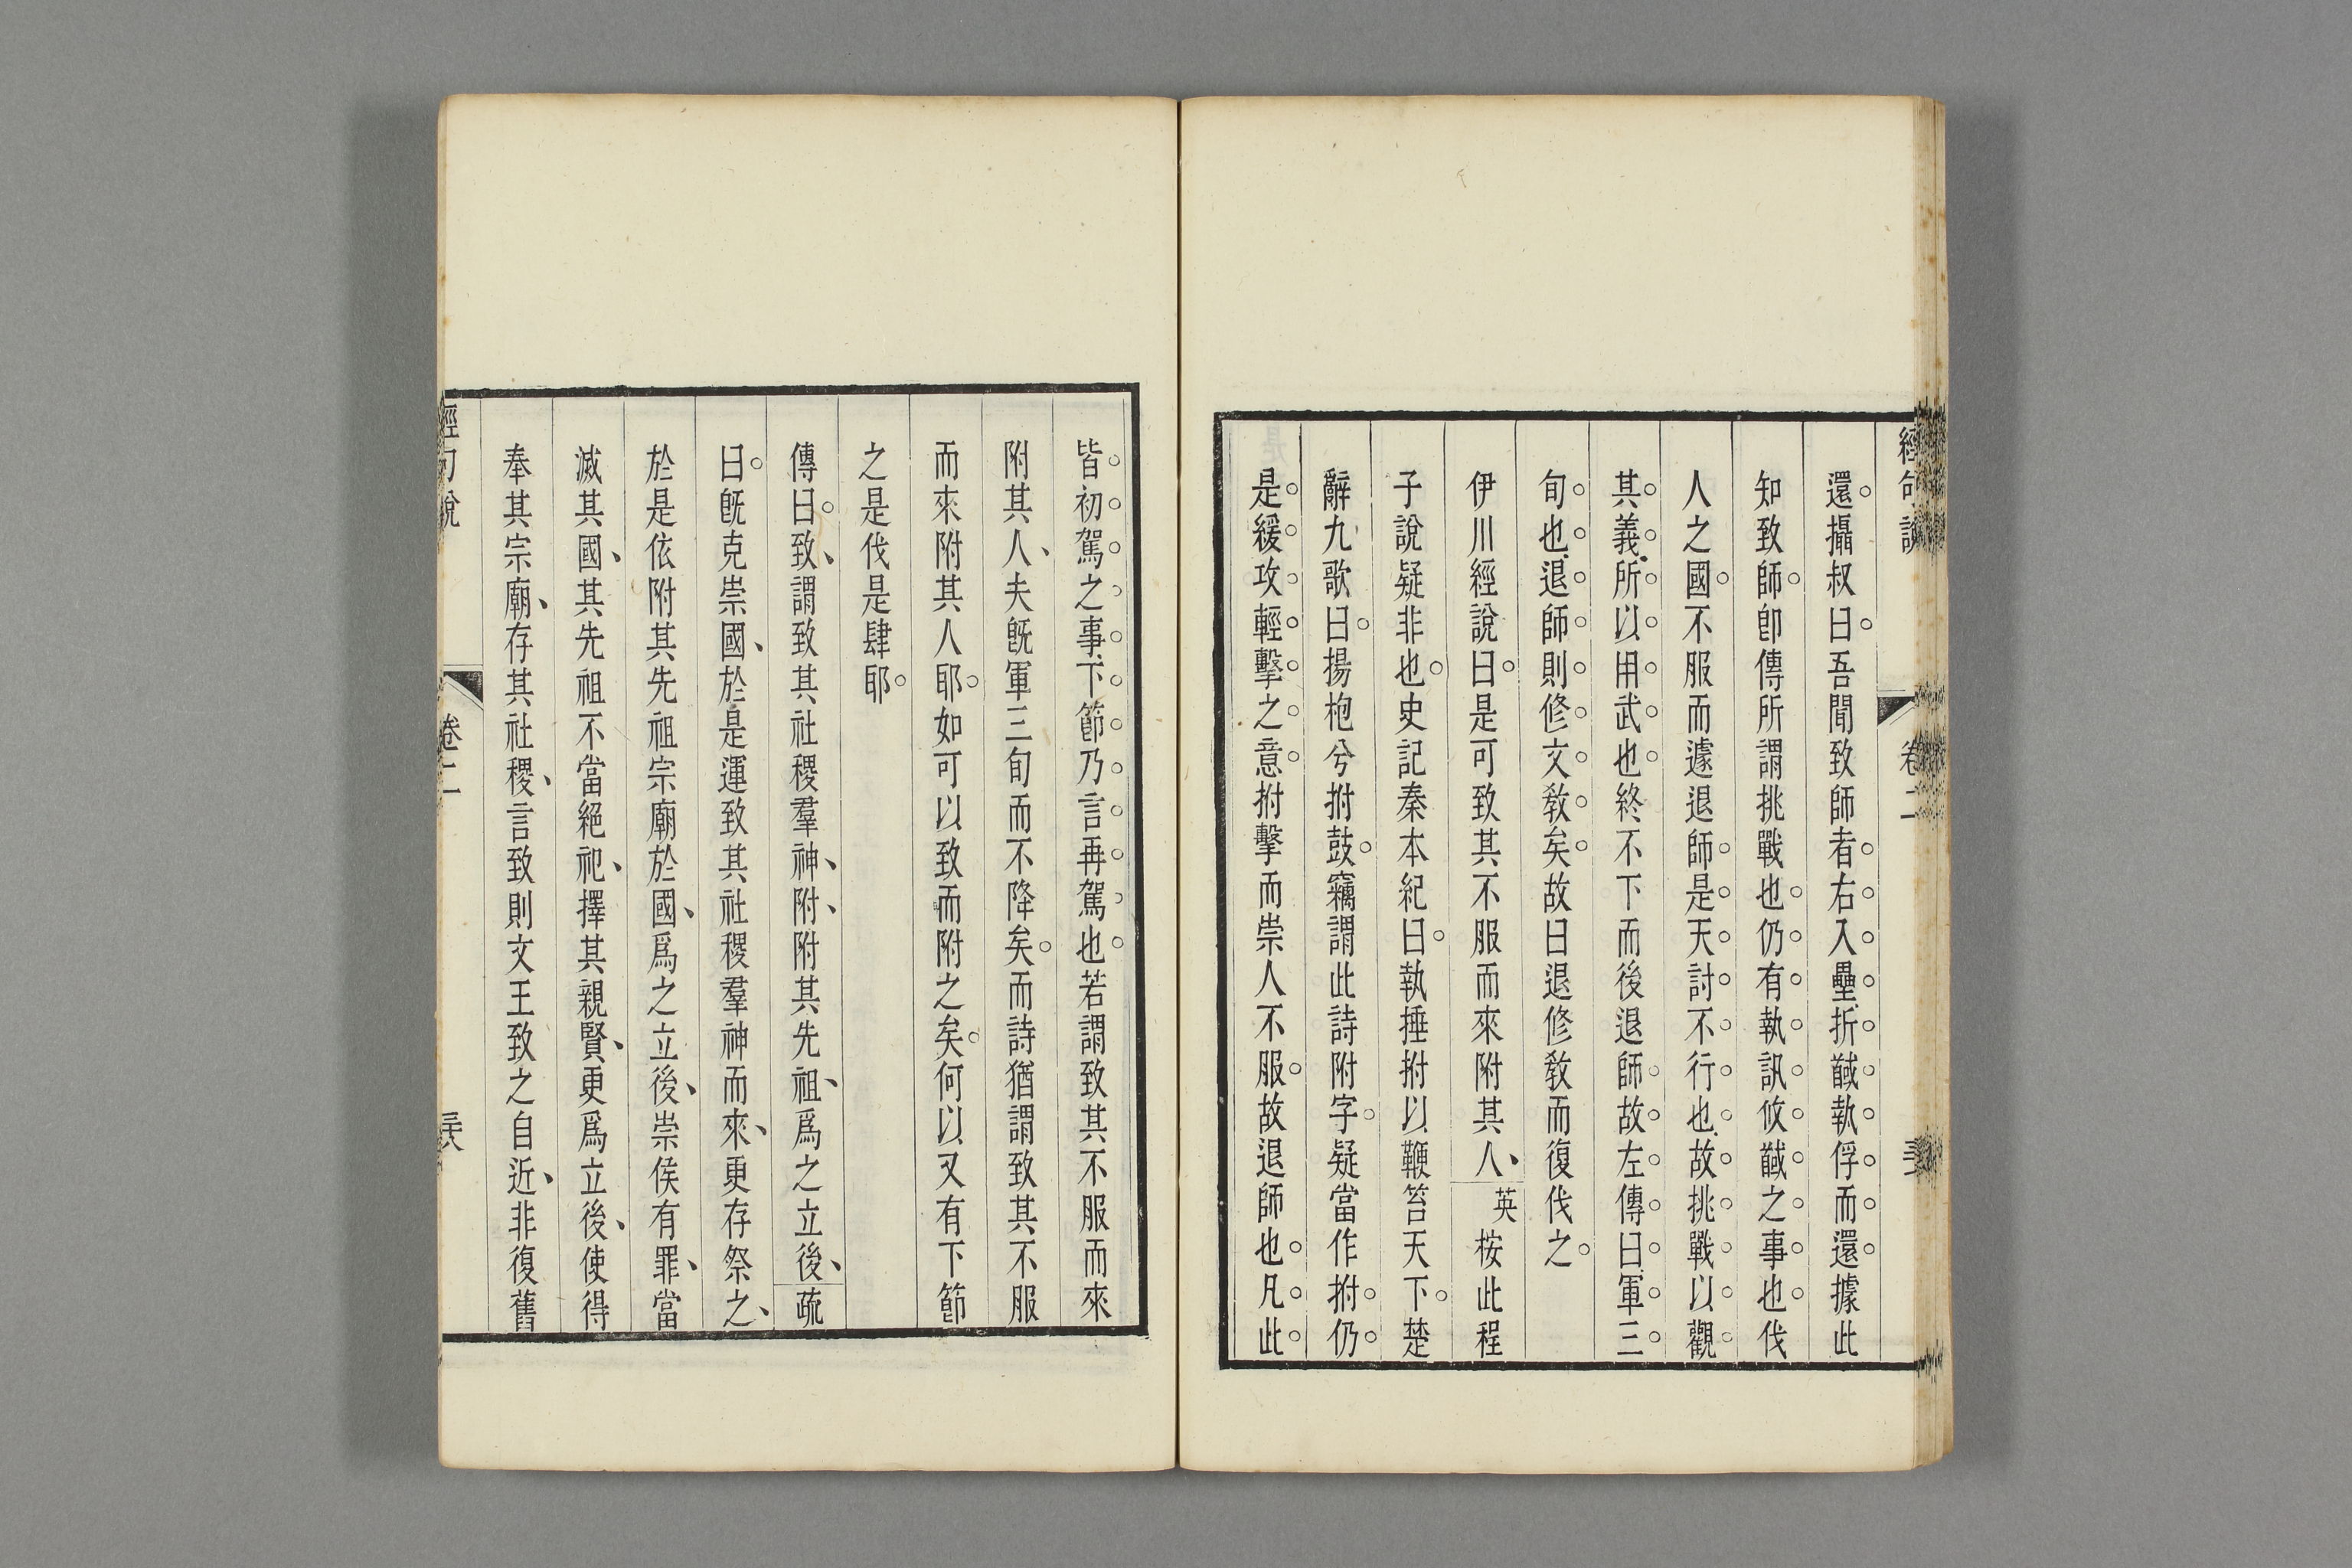 還攝叔曰吾聞致師者右入壘折馘執俘而還據此
知致師卽傳所謂挑戰也仍有執訊攸馘之事也伐
人之國不服而遽退師是天討不行也故挑戰以觀
其義所以用武也終不下而後退師故左傳曰軍三
旬也退師則修文敎矣故曰退修敎而復伐之
伊川經說曰是可致其不服而來附其人英桉此程
子說疑非也史記秦本紀曰執捶拊以鞭笞天下楚
辭九歌曰揚枹兮拊鼓竊謂此詩附字疑當作拊仍
是緩攻輕擊之意拊擊而崇人不服故退師也凡此
皆初駕之事下節乃言再駕也若謂致其不服而來
附其人夫旣軍三旬而不降矣而詩猶謂致其不服
而來附其人耶如可以致而附之矣何以又有下節
之是伐是肆耶
傳曰致謂致其社稷羣神附附其先祖爲之立後疏
曰旣克崇國於是運致其社稷羣神而來更存祭之
於是依附其先祖宗廟於國爲之立後崇侯有罪當
滅其國其先祖不當絕祀擇其親賢更爲立後使得
奉其宗廟存其社稷言致則文王致之自近非復舊
經句說
卷二